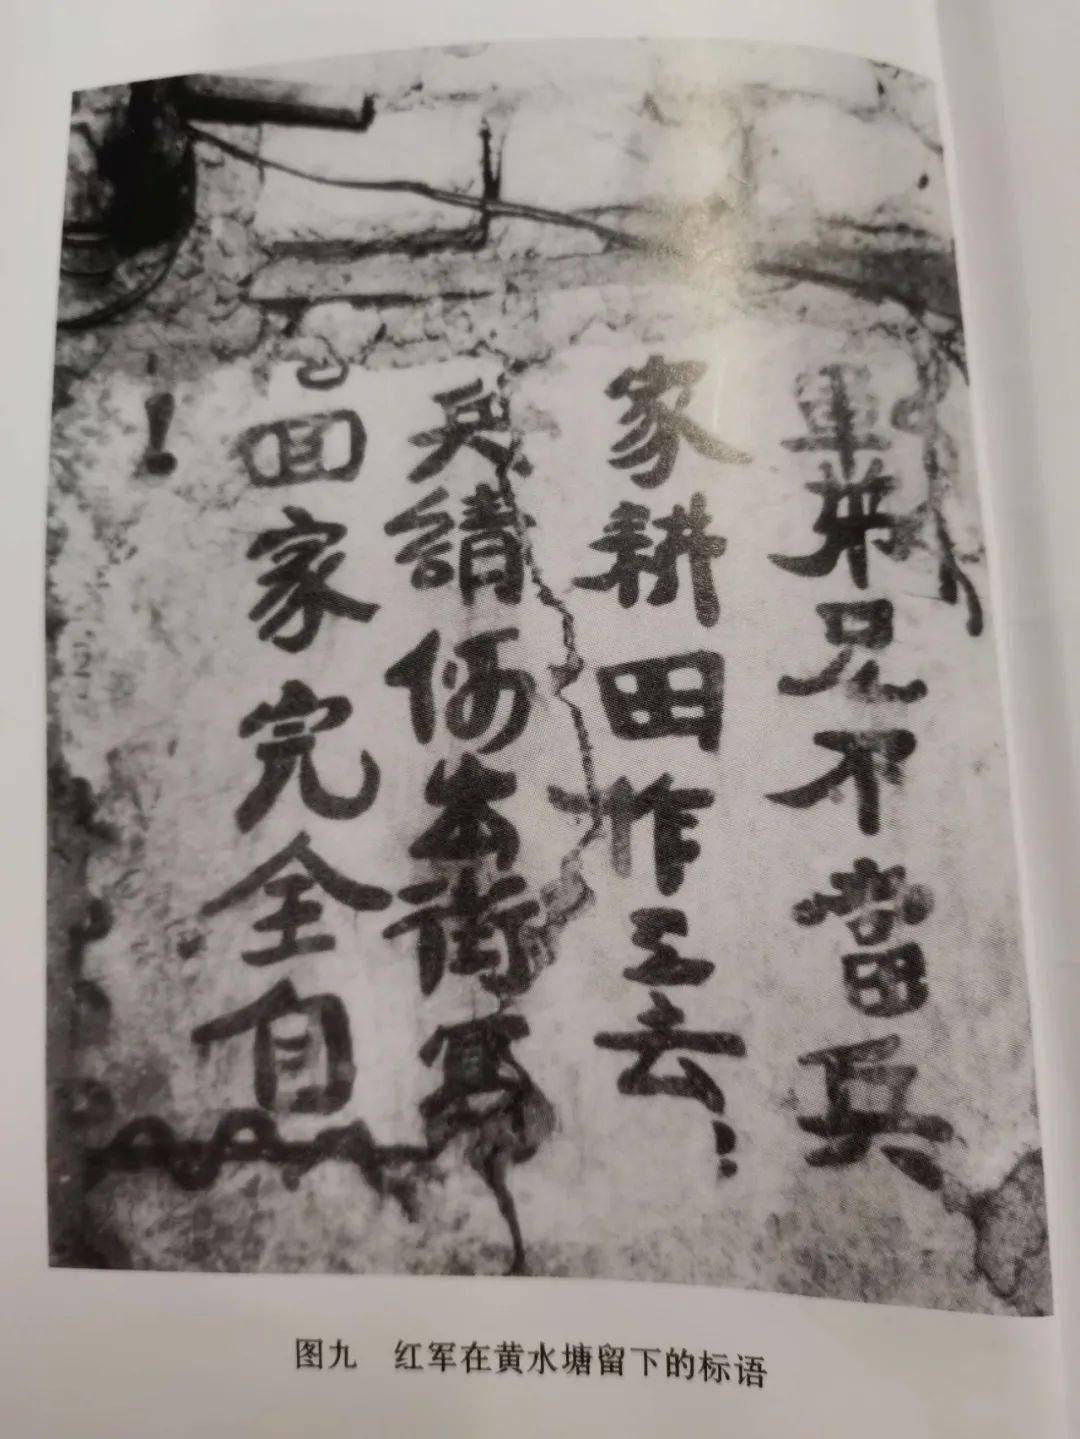 軍弟兄不當兵
家耕田作工去!
兵請假出街寫
回家完全自
!
图九 红军在黄水塘留下的标语